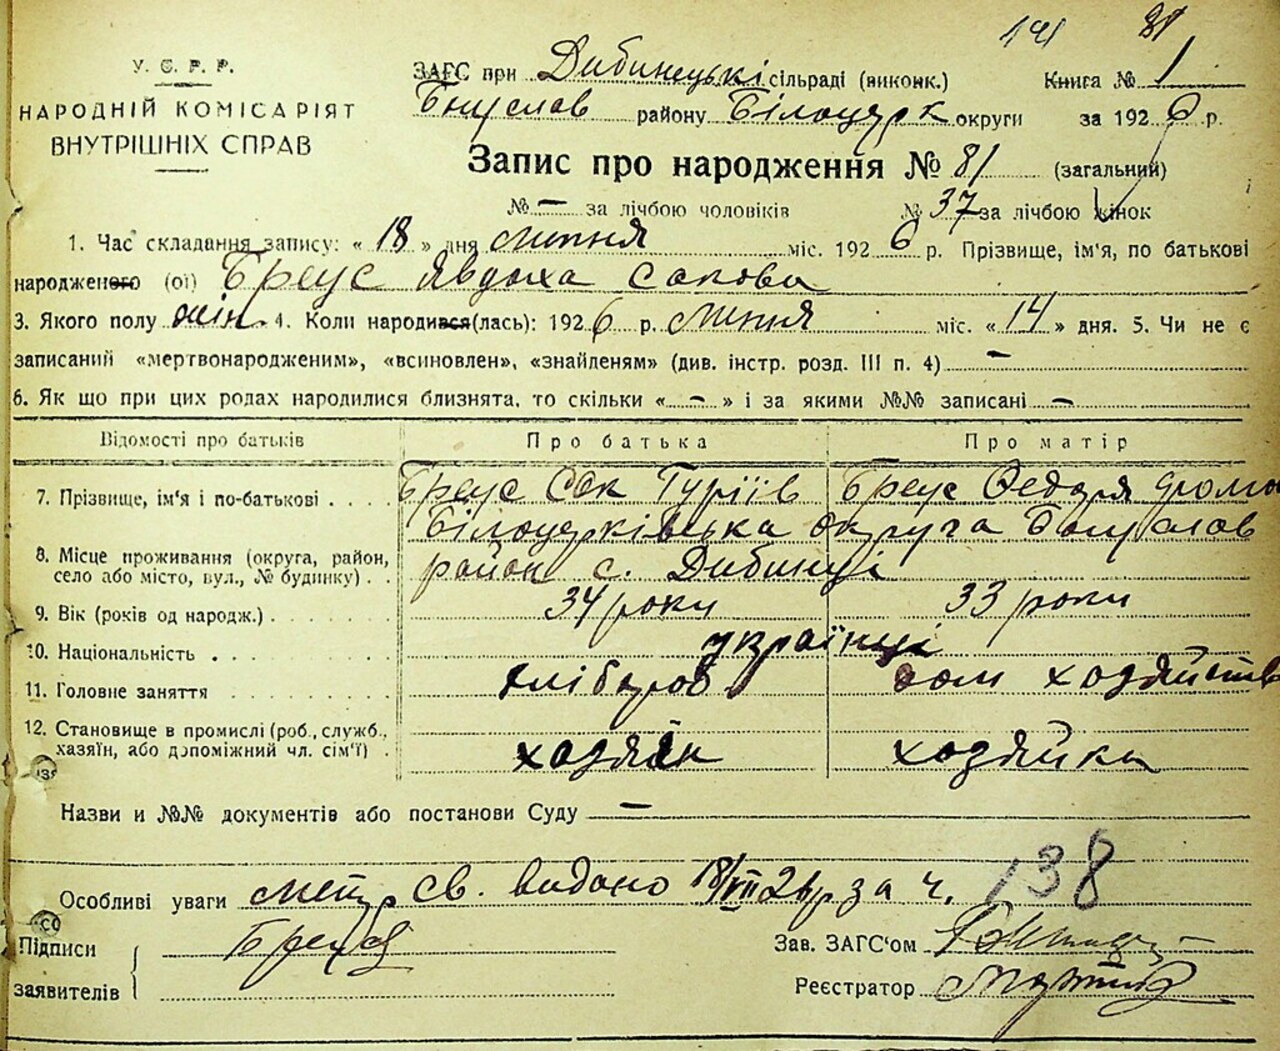 141 81
У. С. Р. Р.
НАРОДНІЙ КОМІСАРІЯТ
ВНУТРІШНІХ СПРАВ
ЗАГС при Дибинецькі сільраді (виконк.) Книга № 1
Богуслав району Білоцерк округи за 1926 р.
Запис про народження № 81 (загальний)
№ – за лічбою чоловіків № 37 за лічбою жінок
1. Час складання запису: « 18 » дня липня міс. 1926 р. Прізвище, ім'я, по батькові
народженого (ої) Бреус Явдоха Сакова
3. Якого полу жін. 4. Коли народився(лась): 1926 р. липня міс. « 14 » дня. 5. Чи не є
записаний «мертвонародженим», «всиновлен», «знайденям» (див. інстр. розд. III п. 4) –
6. Як що при цих родах народилися близнята, то скільки « – » і за якими №№ записані –
Відомості про батьків Про батька Про матір
7. Прізвище, ім'я і по-батькові Бреус Сак Гуріїв Бреус Федора
8. Місце проживання (округа, район, село або місто, вул., № будинку) Білоцерківська округа Богуслав
район с. Дибинці
9. Вік (років од народж.) 34 роки 33 роки
10. Національність українці
11. Головне заняття хлібороб дом хозяйство
12. Становище в промислі (роб., служб., хазяїн, або допоміжний чл. сім'ї) хозяїн хозяйка
Назви и №№ документів або постанови Суду –
Особливі уваги метр св. видано 18/VII 26 р за ч. 138
Підписи Бреус Зав. ЗАГС'ом
заявителів Реєстратор